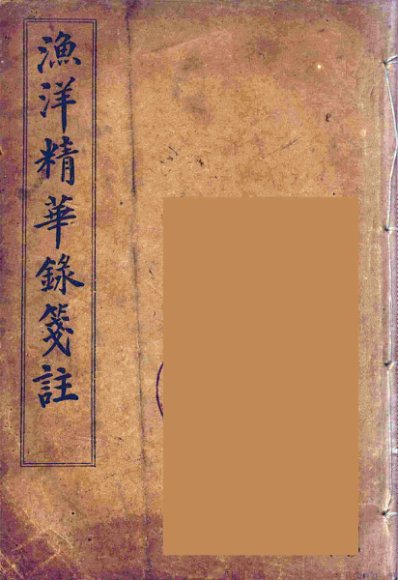 漁洋精華錄箋註